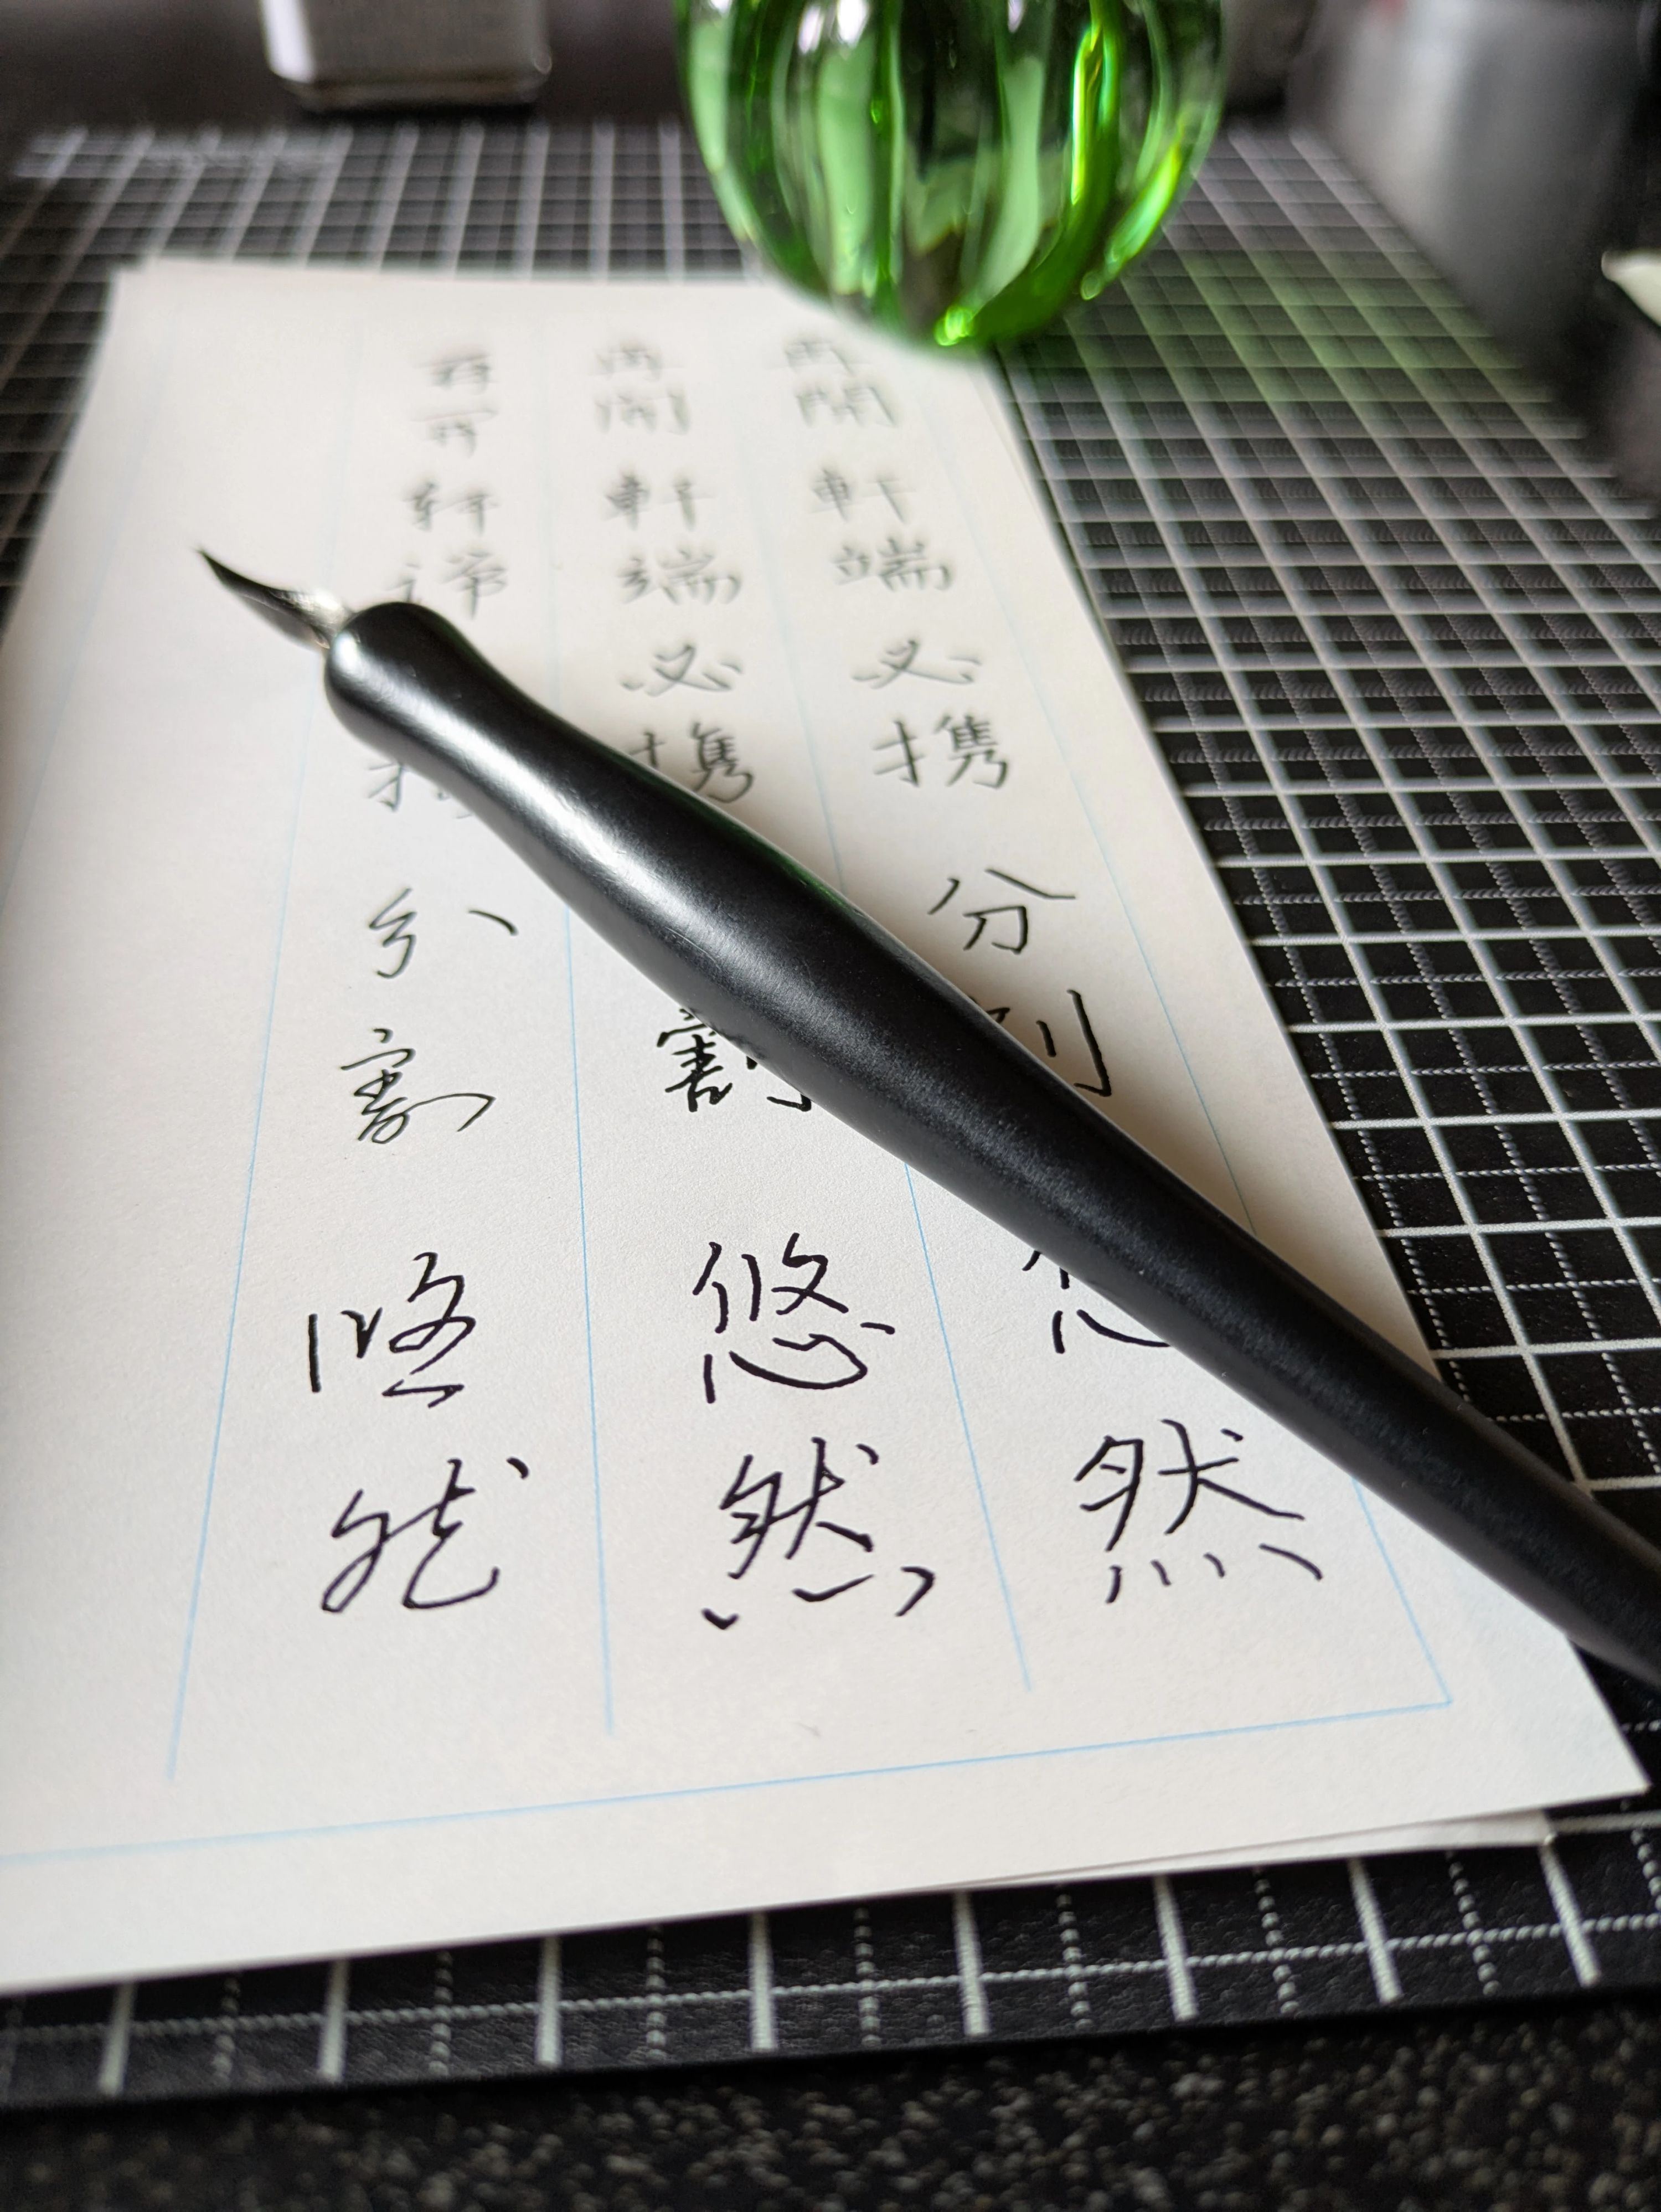 再開軒端必携分割悠然
再開軒端必携割悠然
再開軒端携分割悠然